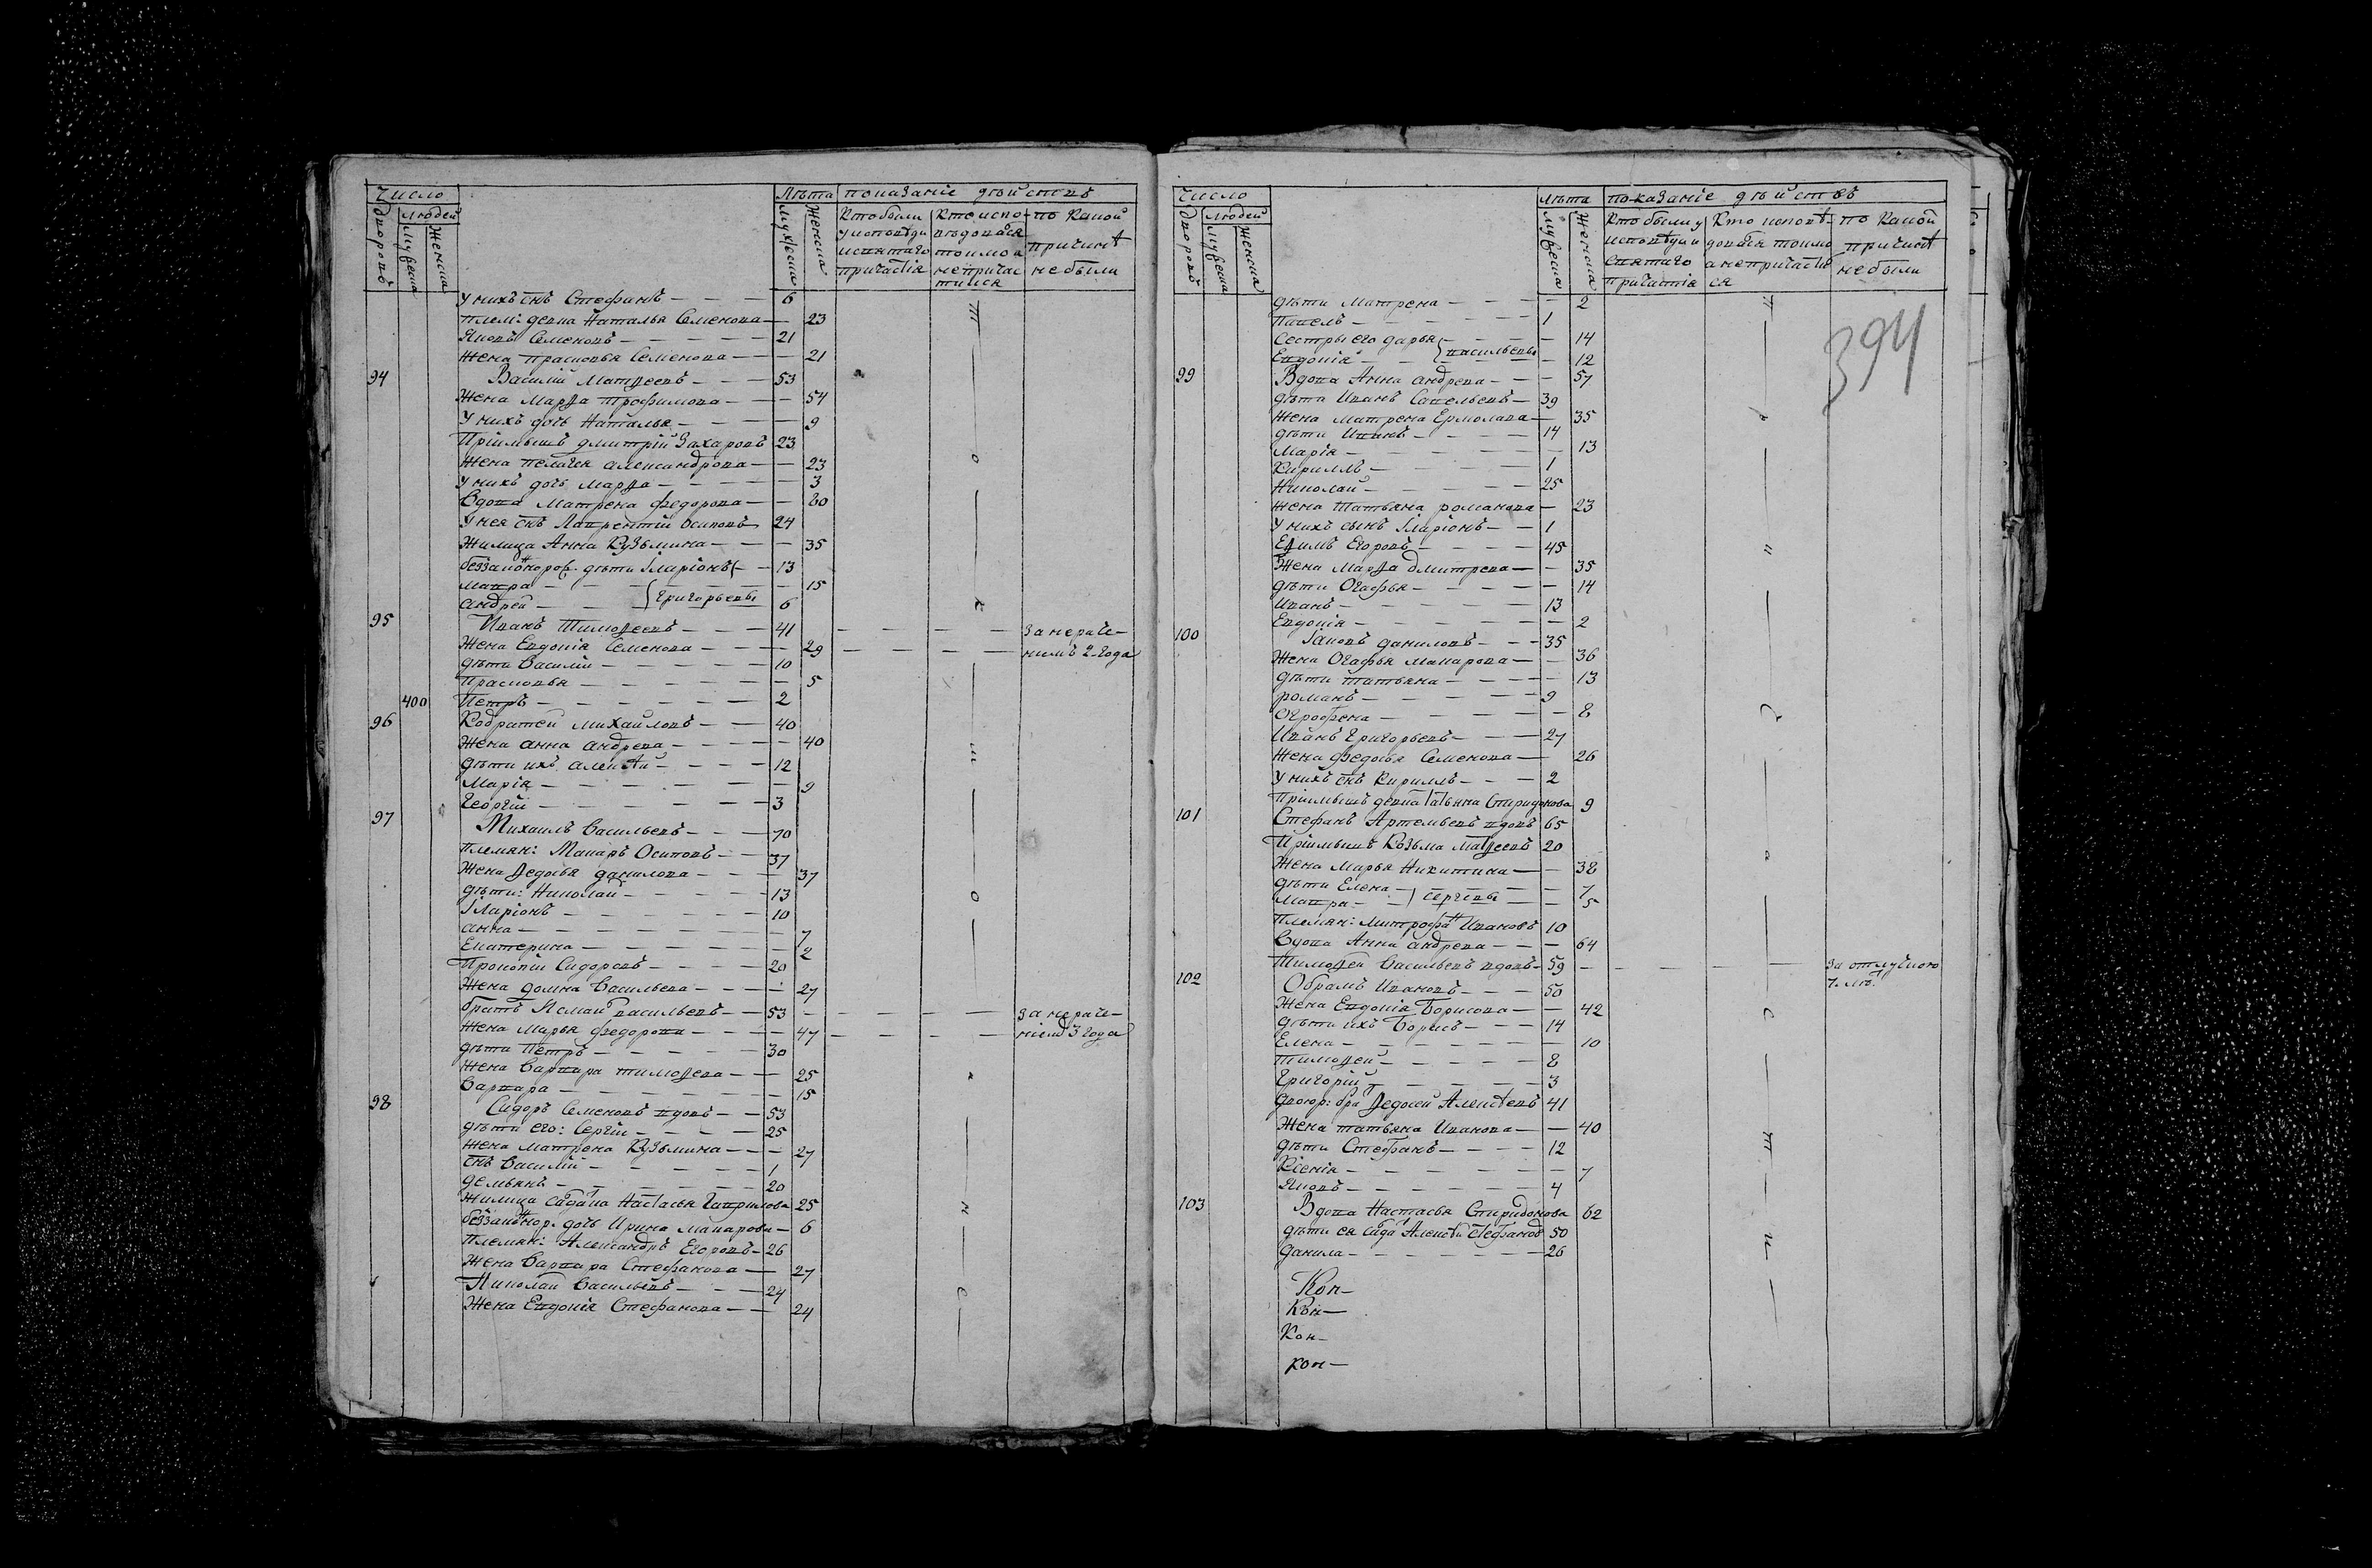 Число Лѣта показаніе дѣйствъ
дворовъ людей мужеска женска мужеска женска
Кто были Кто испо- по какой
у исповѣди вѣдовался
и святаго токмо а причинѣ
причастія не причас не были
тился
У нихъ снъ Стефанъ — 6
плем: девка Наталья Семенова — 23
Яковъ Семеновъ — 21
Жена Прасковья Семенова — 21
94 Василій Матѳеевъ — 53
Жена Марѳа Трофимова — 54
У нихъ дочь Наталья — 9
Пріимышъ Дмитрій Захаровъ 23
Жена Пелагея Александрова — 23
У нихъ дочь Марѳа — 3
Вдова Матрена Федорова — 60
У нея снъ Лаврентій Осиповъ 24
Жилица Анна Кузьмина — 35
беззаконорож. дѣти Іларіонъ — 13
Мавра — 15
Григорьевы
Андрей — 6
95 Иванъ Тимоѳеевъ — 41 — за нераче-
Жена Евдокія Семенова — 29 — ніемъ 2 года
дѣти Василій — 10
Прасковья — 5
400 Петръ — 2
96 Кодратей Михайловъ — 40
Жена Анна Андрева — 40
дѣти ихъ Алексѣй — 12
Марія — 9
Георгій — 3
97 Михаилъ Васильевъ — 70
племян: Макаръ Осиповъ — 37
Жена Ѳедосья Данилова — 37
дѣти: Николай — 13
Іларіонъ — 10
Анна — 7
Екатерина — 2
Прокопій Сидоровъ — 20
Жена Домна Васильева — 27
братъ Исай Васильевъ — 53 — за нераче-
Жена Марья Федорова — 47 — ніемъ 3 года
дѣти Петръ — 30
Жена Варвара Тимоѳева — 25
Варвара — 15
98 Сидоръ Семеновъ вдовъ — 53
дѣти его: Сергій — 25
Жена Матрона Кузьмина — 27
снъ Василій — 1
Демьянъ — 20
Жилица Настасья Гаврилова 25
беззаконор. дочь Ирина Макарова — 6
Племян: Александръ Егоровъ — 26
Жена Варвара Стефанова — 27
Николай Васильевъ — 24
Жена Евдокія Стефанова — 24
Число лѣта показаніе дѣйствъ
дворовъ людей мужеска женска мужеска женска
Кто были у Кто исповѣ- по какой
исповѣди и довался токмо причинѣ
святаго а не причастил не были
причастія ся
394
дѣти Матрена — 2
Павелъ — 1
Сестры его Дарья — 14
васильевы
Евдокія — 12
99 Вдова Анна Андрева — 57
дѣти Иванъ Савельевъ — 39
Жена Матрена Ермолава — 35
дѣти Иванъ — 14
Марія — 13
Кириллъ — 1
Николай — 25
Жена Татьяна Романова — 23
У нихъ сынъ Іларіонъ — 1
Еѳимъ Егоровъ — 45
Жена Марѳа Дмитрева — 35
дѣти Огафья — 14
Иванъ — 13
Евдокія — 2
100 Іаковъ Даниловъ — 35
Жена Огафья Макарова — 36
дѣти Татьяна — 13
Романъ — 9
Огрофена — 8
Иванъ Григорьевъ — 27
Жена Федосья Семенова — 26
У нихъ снъ Кириллъ — 2
Пріимышъ девка Татьяна Спиридонова 9
101 Стефанъ Артемьевъ вдовъ 65
Пріимышъ Козьма Матѳеевъ 20
Жена Марья Никитина — 38
дѣти Елена — 7
Сергѣевы
Мавра — 5
Племян: Митрофанъ Ивановъ 10
Вдова Анна Андрева — 64
Тимоѳей Васильевъ вдовъ — 59 — за отлучкою
102 Обрамъ Ивановъ — 50
Жена Евдокія Борисова — 42
дѣти ихъ Борисъ — 14
Елена — 10
Тимоѳей — 8
Григорій — 3
Двоюр: бра Ѳедосей Алексѣевъ 41
Жена Татьяна Иванова — 40
дѣти Стефанъ — 12
Ксенія — 7
Яковъ — 4
103 Вдова Настасья Спиридонова 62
дѣти ея Алексѣй Стефановъ 50
Данила — 26
Кон—
Кон—
Кон—
Кон—